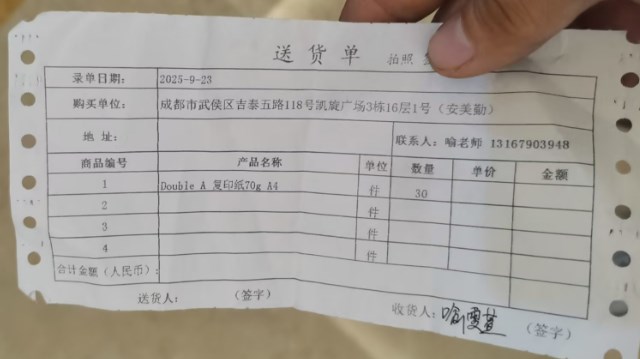 送货单 拍照
录单日期: 2025-9-23
购买单位: 成都市武侯区吉泰五路118号凯旋广场3栋16层1号（安美勤）
地 址: 联系人: 喻老师 13167903948
商品编号 产品名称 单位 数量 单价 金额
1 Double A 复印纸70g A4 件 30
2 件
3 件
4 件
合计金额（人民币）:
送货人: （签字） 收货人: （签字）